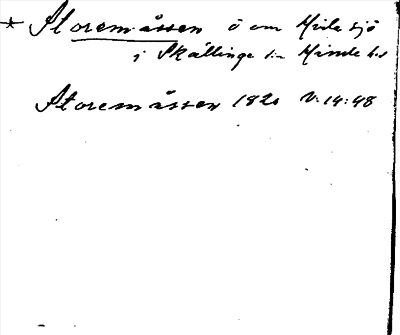 * Storemåssen ö om Hvila sjö
i Skällinge sn Himle hd
Storemåssen 1820 V: 14: 48